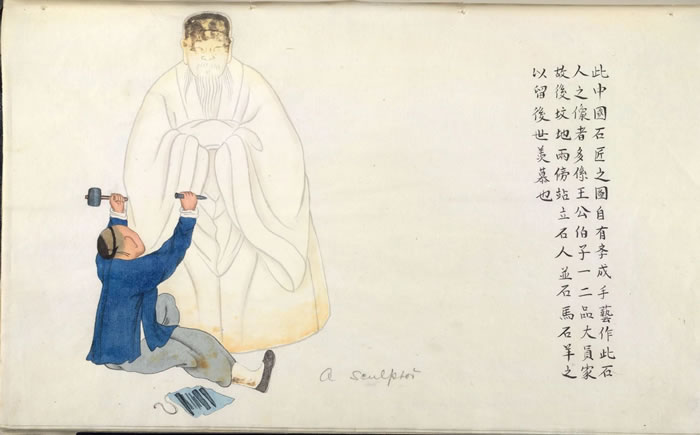 此中國石匠之圖自有成手藝作此石
人之像者多係王公伯子一二品大員家
故後坟地兩傍站立石人並石馬石羊之
以留後世羡慕也
A sculptor